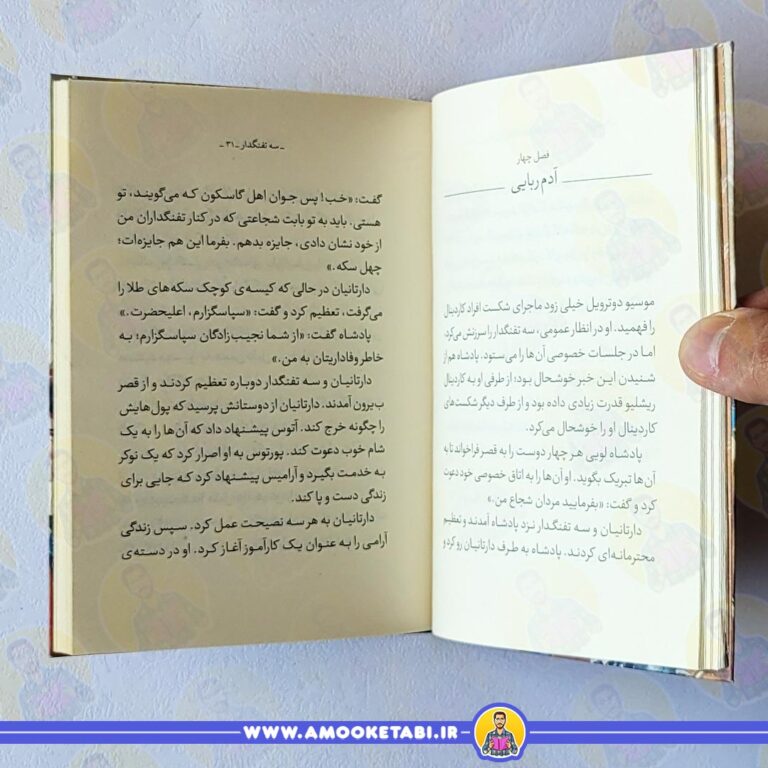 فصل چهار
آدم ربایی
موسیو دوترویل خیلی زود ماجرای شکست افراد کاردینال
را فهمید. او در انظار عمومی، سه تفنگدار را سرزنش می‌کرد،
اما در جلسات خصوصی آن‌ها را می‌ستود. پادشاه هم از
شنیدن این خبر خوشحال بود؛ از طرفی او به کاردینال
ریشلیو قدرت زیادی داده بود و از طرف دیگر شکست‌های
کاردینال او را خوشحال می‌کرد.
پادشاه لویی هر چهار دوست را به قصر فراخواند تا به
آن‌ها تبریک بگوید. او آن‌ها را به اتاق خصوصی خود دعوت
کرد و گفت: «بفرمایید مردان شجاع من.»
دارتانیان و سه تفنگدار نزد پادشاه آمدند و تعظیم
محترمانه‌ای کردند. پادشاه به طرف دارتانیان رو کرد و
ـ سه تفنگدار ـ ۳۱ ـ
گفت: «خب! پس جوان اهل گاسکون که می‌گویند، تو
هستی. باید به تو بابت شجاعتی که در کنار تفنگداران من
از خود نشان دادی، جایزه بدهم. بفرما این هم جایزه‌ات؛
چهل سکه.»
دارتانیان در حالی که کیسه‌ی کوچک سکه‌های طلا را
می‌گرفت، تعظیم کرد و گفت: «سپاسگزارم، اعلیحضرت.»
پادشاه گفت: «از شما نجیب‌زادگان سپاسگزارم؛ به
خاطر وفاداریتان به من.»
دارتانیان و سه تفنگدار دوباره تعظیم کردند و از قصر
بیرون آمدند. دارتانیان از دوستانش پرسید که پول‌هایش
را چگونه خرج کند. آتوس پیشنهاد داد که آن‌ها را به یک
شام خوب دعوت کند. پورتوس به او اصرار کرد که یک نوکر
به خدمت بگیرد و آرامیس پیشنهاد کرد که جایی برای
زندگی دست و پا کند.
دارتانیان به هر سه نصیحت عمل کرد. سپس زندگی
آرامی را به عنوان یک کارآموز آغاز کرد. او در دسته‌ی
WWW.AMOOKETABI.IR